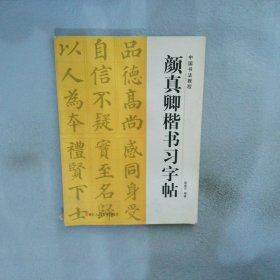 中国书法教程
颜真卿楷书习字帖
品德高尚感同身受
自信不疑實至名歸
以人為本禮賢下士